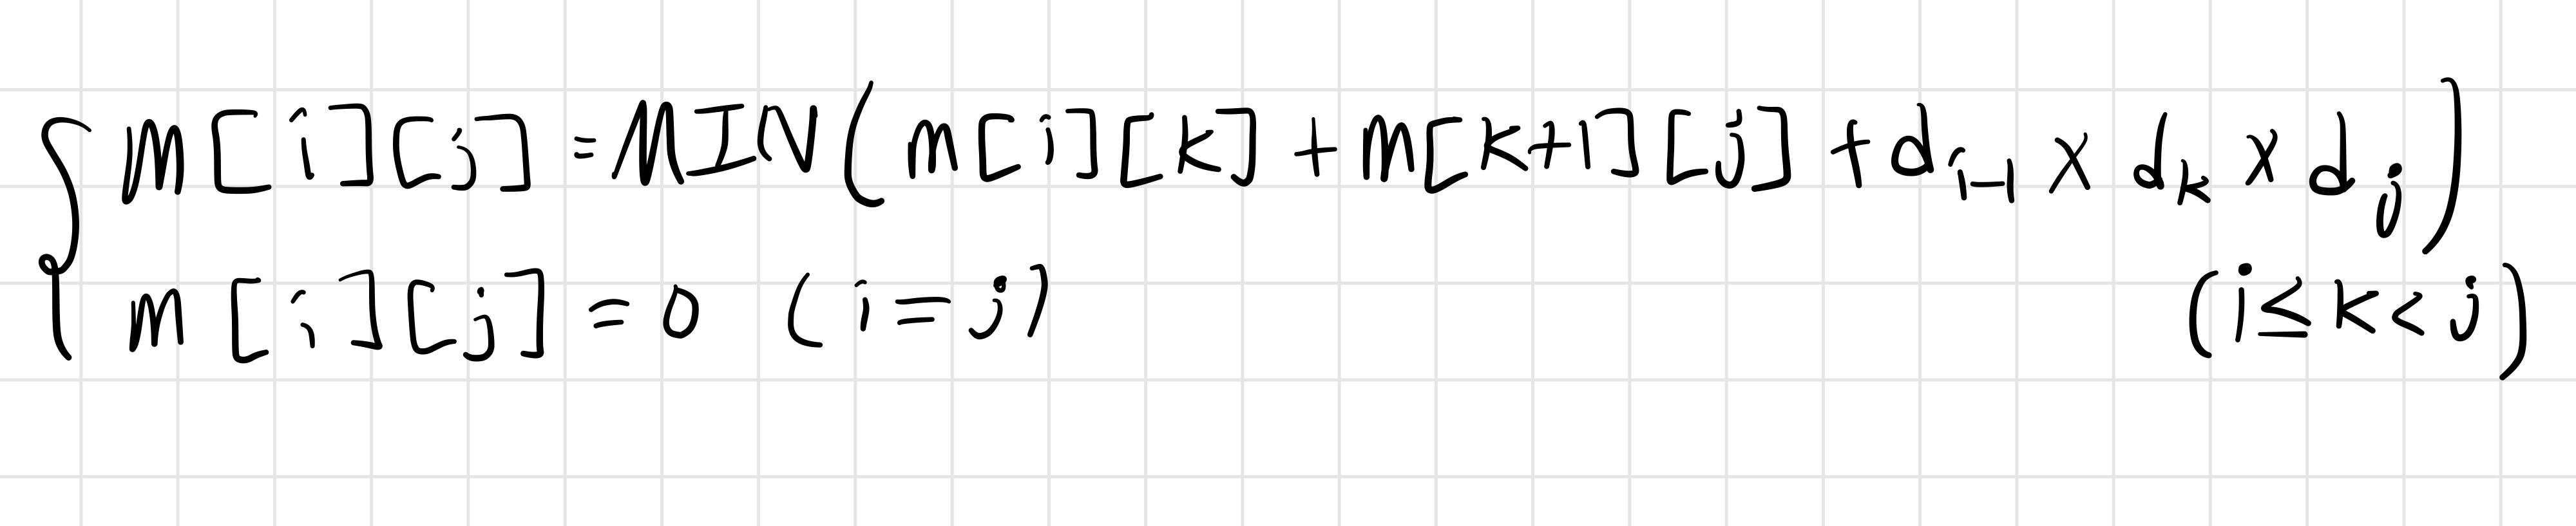 M[i][j] = MIN(m[i][k] + m[k+1][j] + d_{i-1} × d_k × d_j)
m[i][j] = 0 (i = j) (i ≤ k < j)